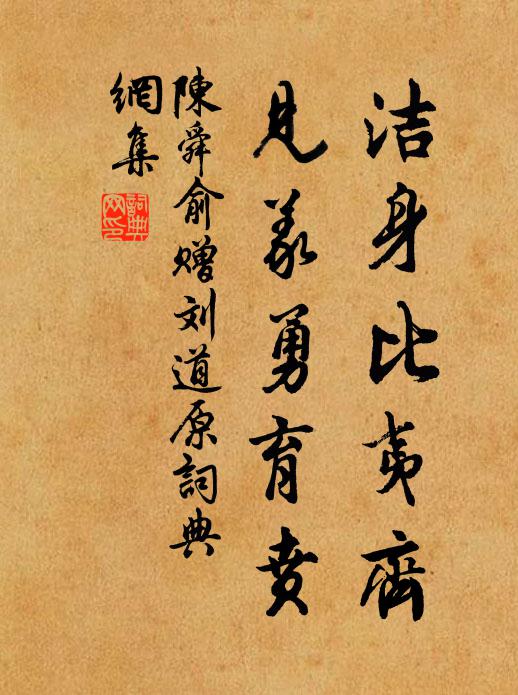 洁身比夷齊
見義勇育賁
陳舜俞贈刘道原詞典
網集
詞典
网印